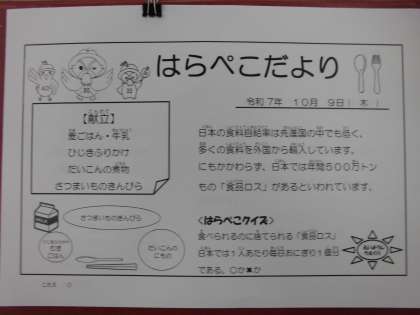 はらぺこだより
令和7年 10月 9日( 木 )
【献立】
麦ごはん・牛乳
ひじきふりかけ
だいこんの煮物
さつまいものきんぴら
日本の食料自給率は先進国の中でも低く、
多くの食料を外国から輸入しています。
にもかかわらず、日本では年間500万トン
もの「食品ロス」があるといわれています。
さつまいものきんぴら
むぎ
ごはん
だいこんの
にもの
<はらぺこクイズ>
食べられるのに捨てられる「食品ロス」
日本では1人あたり毎日おにぎり1個分
である。〇か✖か
こたえ 〇